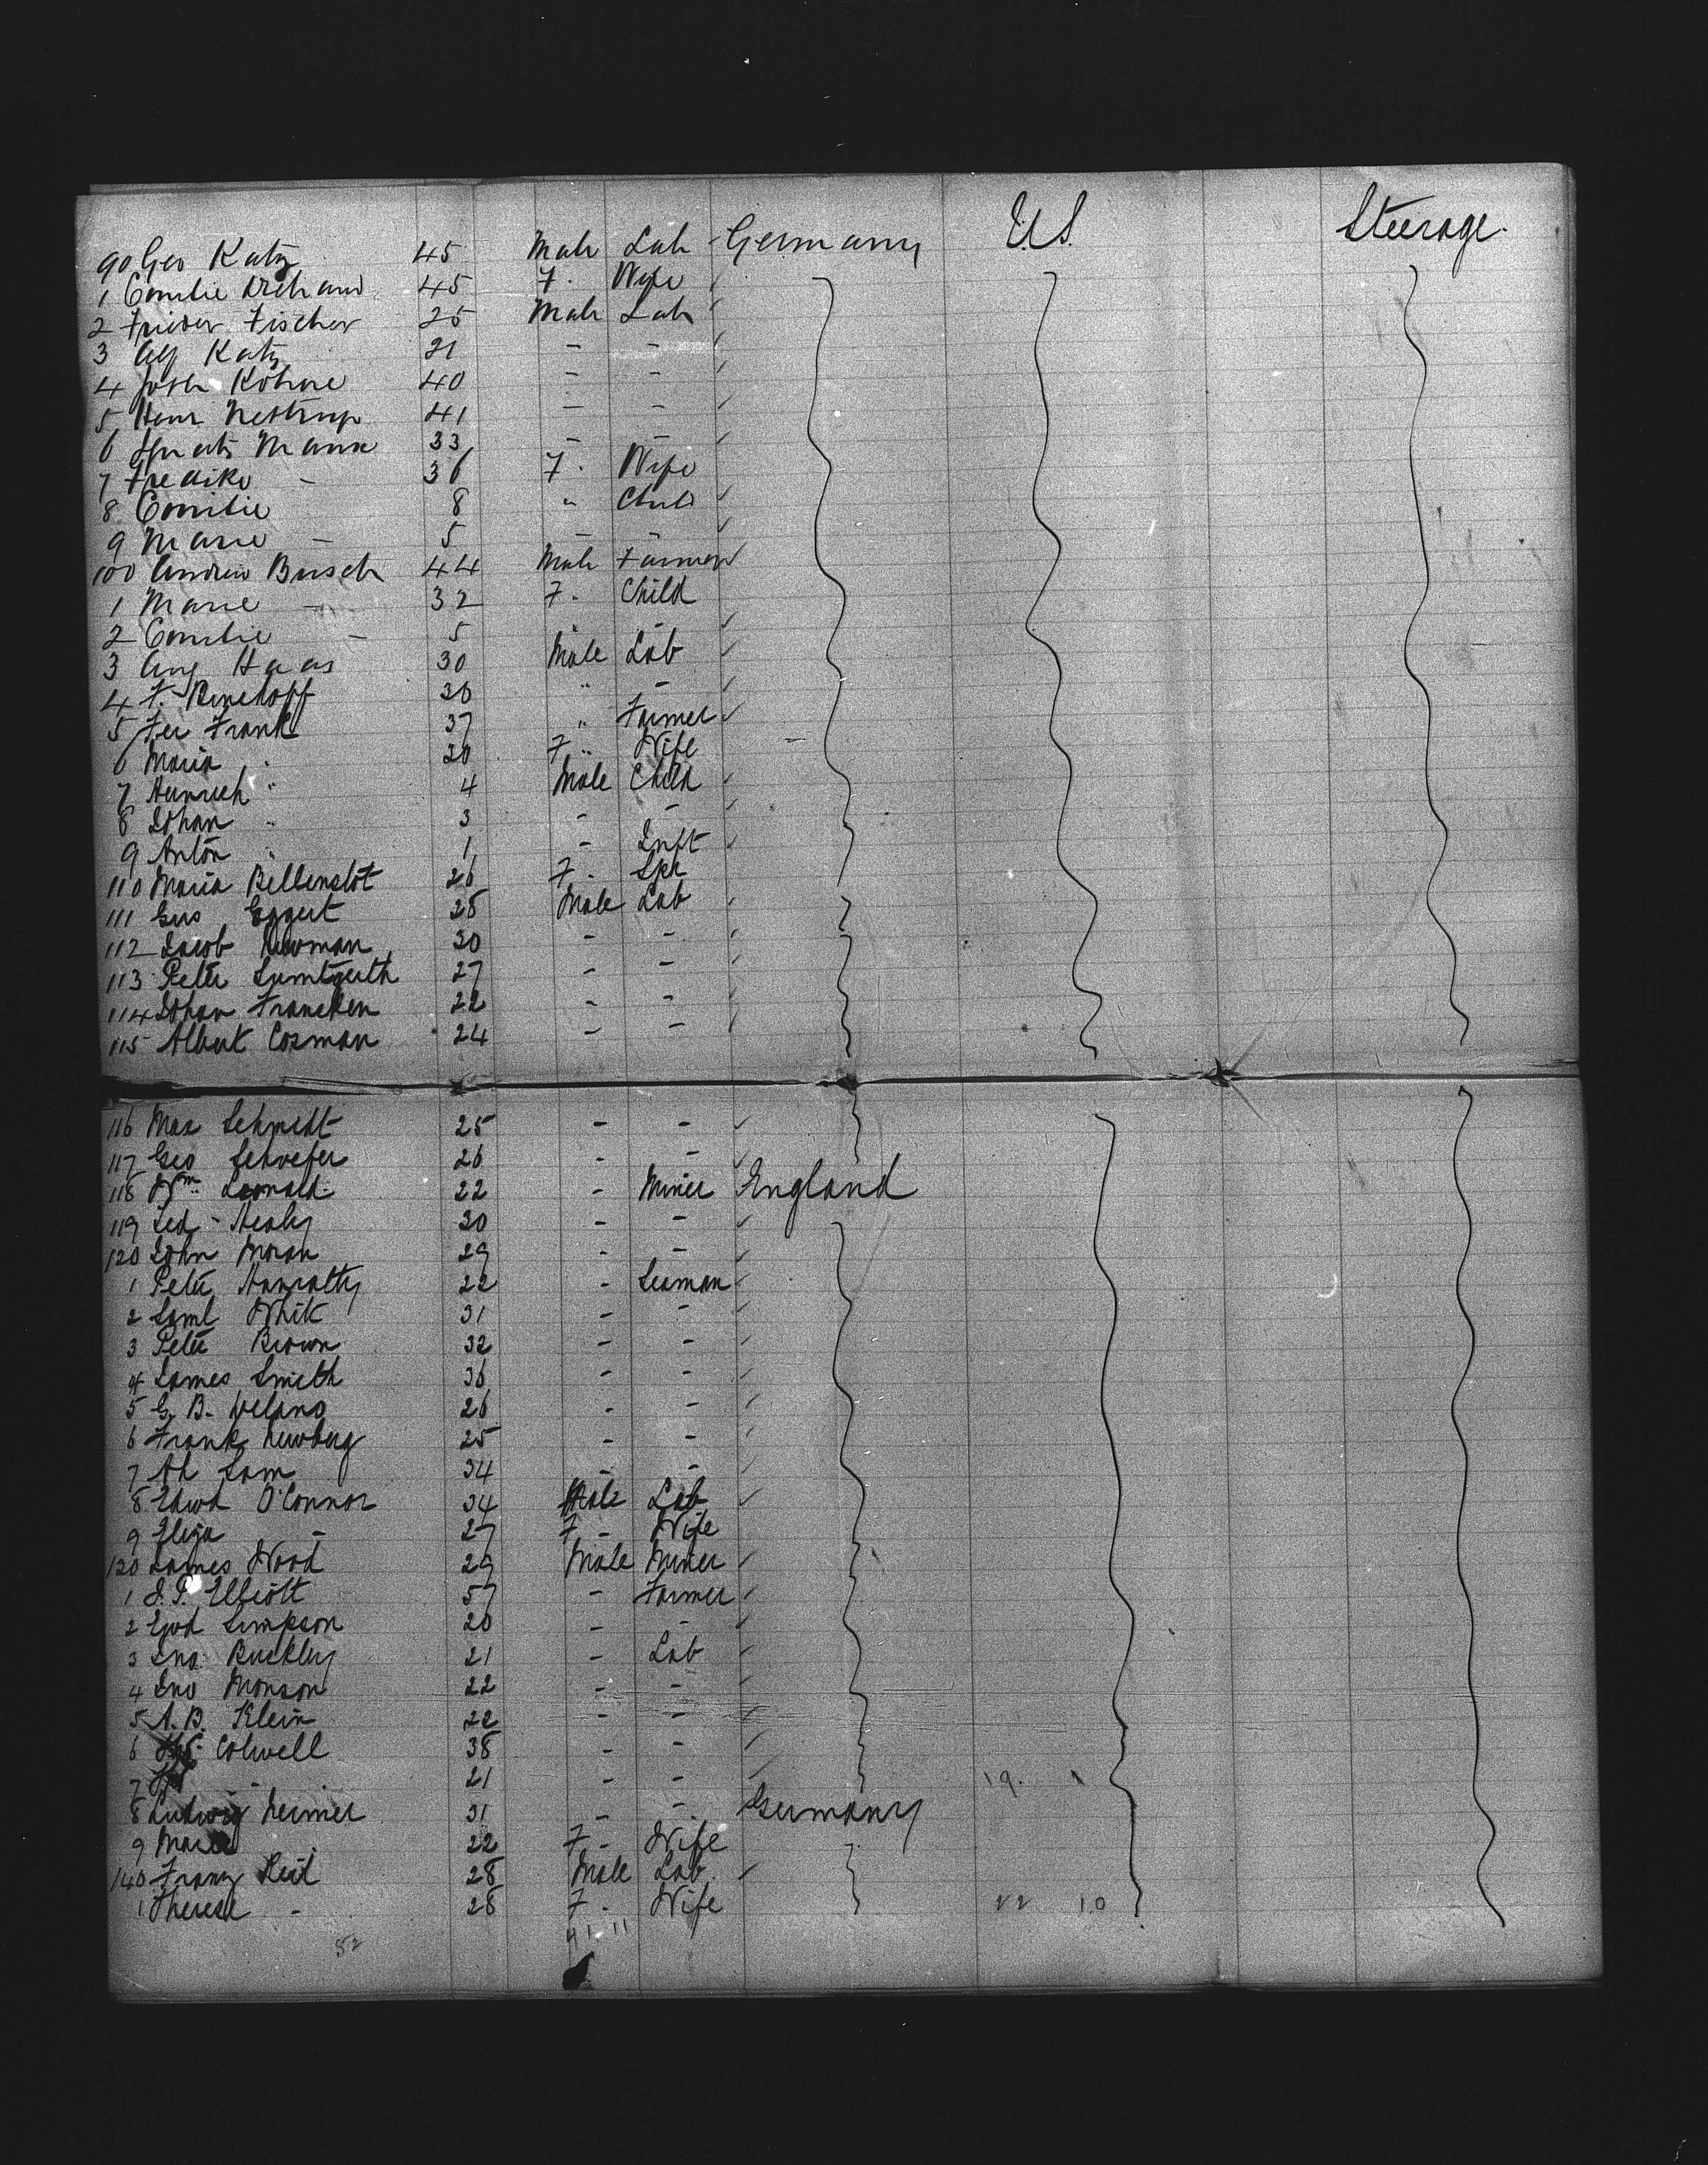 90 Geo Katz 45 Male Lab Germany U.S. Steerage.
1 Emilie 45 F. Wife
2 Frieder Fischer 25 Male Lab
3 Alf Katz 21 - -
4 Joseh Kohne 40 - -
5 Henr 41 - -
6 Manx 33 - -
7 Fredike - 36 F. Wife
8 Emilie 8 " Child
9 Marie - 5 - -
100 Andrew Busch 44 Male Farmer
1 Marie - 32 F. Child
2 Emilie - 5 " -
3 Aug Haas 30 Male Lab
4 F. 30 " -
5 Fer Frank 37 " Farmer
6 Maria " 30 F " Wife
7 Heinrich " 4 Male Child
8 Johan " 3 - -
9 Anton " 1 - Inft
110 Maria Bellenslot 26 F. Spr
111 Gus Eggert 25 Male Lab
112 Jacob Newman 30 - -
113 Peter 27 - -
114 Johan Francken 22 - -
115 Albert Cosman 24 - -
116 Max Schmidt 25 - -
117 Geo Schaefer 26 - -
118 Wm Leonard 22 - Miner England
119 Ted - Healy 30 - -
120 John Moran 29 - -
1 Peter Hanratty 22 - Seaman
2 Saml White 31 - -
3 Peter Brown 32 - -
4 James Smith 36 - -
5 G. B. 26 - -
6 Frank Newberg 25 - -
7 Ah Sam 34 - -
8 Edwd O'Connor 34 Male Lab
9 Eliza - 27 F - Wife
120 James Wood 29 Male Miner
1 J. P. Elliott 57 - Farmer
2 Simpson 20 - -
3 Jno Buckley 21 - Lab
4 Jno Monson 22 - -
5 A. B. Klein 22 - -
6 Colwell 38 - -
7 - 21 - - 19.
8 Ludwig Neimer 31 - - Germany
9 Marie 22 F - Wife
140 Franz Reil 28 Male Lab
1 Therese - 28 F. Wife 22 10
52 41.11